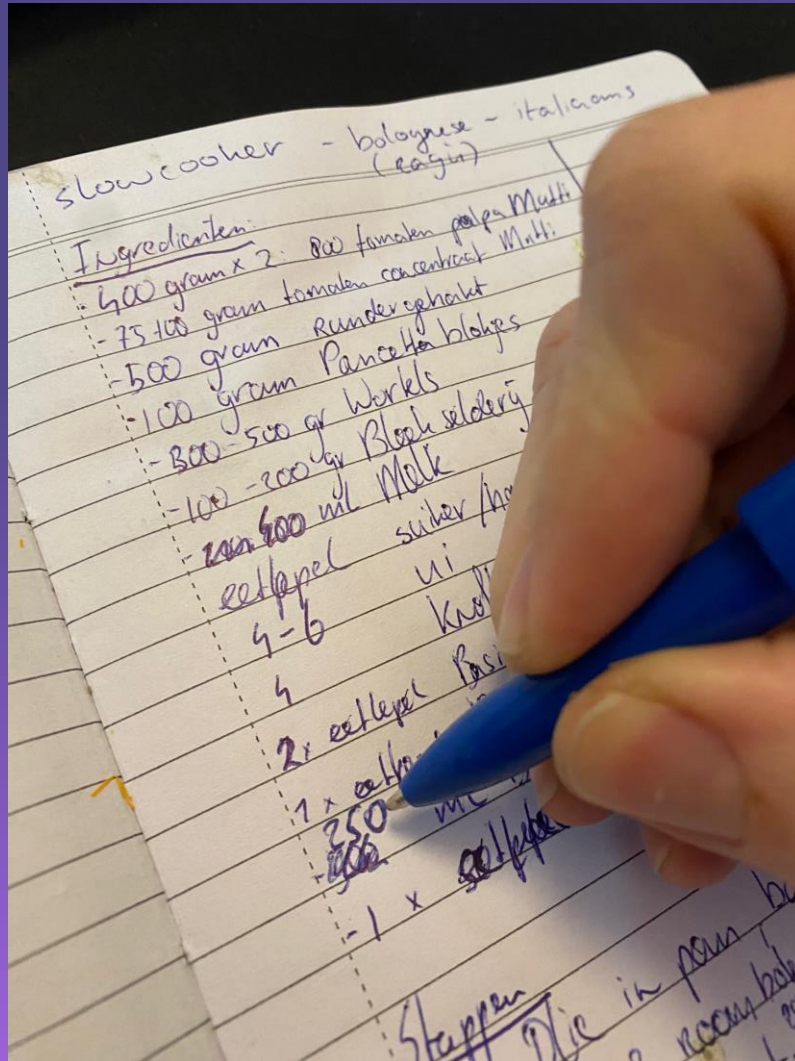 slowcooker - bolognese - italiaans
(ragù)
Ingredienten:
- 400 gram x 2: 800 tomaten pulpa Mutti
- 75 + 100 gram tomaten concentraat Mutti
- 500 gram Rundergehakt
- 100 gram Pancetta blokjes
- 300-500 gr Wortels
- 100-200 gr Bleekselderij
- 400 ml Melk
eetlepel suiker /
4-6 ui
4
2x eetlepel
1 x
250 ml
- 1 x eetlepel
Stappen
Olie in pan